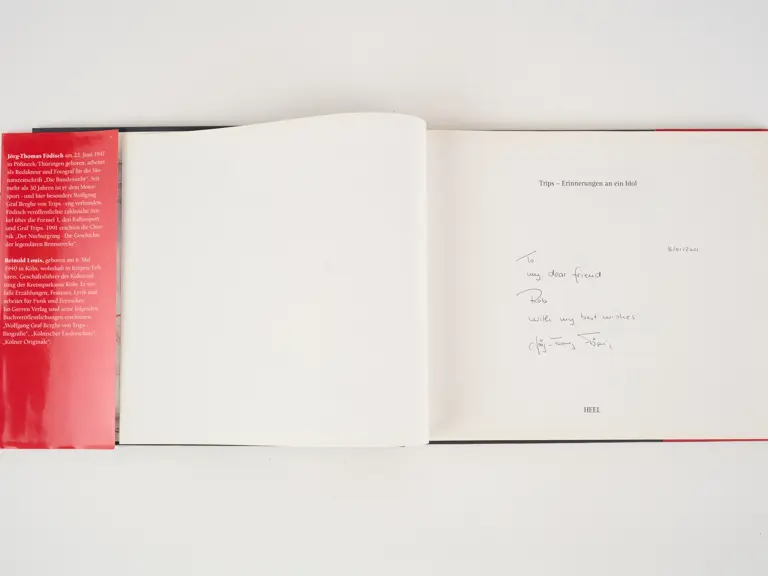 Jörg-Thomas Födisch am 23. Juni 1947
in Pößneck/Thüringen geboren, arbeitet
als Redakteur und Fotograf für die
"Die Bundesbahn". Seit
mehr als 30 Jahren ist er dem Motor-
sport - und hier besonders Wolfgang
Graf Berghe von Trips - eng verbunden.
Födisch veröffentlichte zahlreiche Arti-
kel über die Formel 1, den Rallyesport
und Graf Trips. 1991 erschien die Chro-
nik „Der Nürburgring - Die Geschichte
der legendären Rennstrecke".
Reinold Louis, geboren am 6. Mai
1940 in Köln, wohnhaft in Kerpen
Geschäftsführer der
der Kreissparkasse Köln. Er
Erzählungen, Features, Lyrik und
arbeitet für Funk und Fernsehen.
Im Greven Verlag sind seine folgenden
Buchveröffentlichungen erschienen:
„Wolfgang Graf Berghe von Trips -
Biografie", „Kölnischer Liederschatz",
„Kölner Originale".
Trips – Erinnerungen an ein Idol
To
my dear friend
Rob
with my best wishes
HEEL